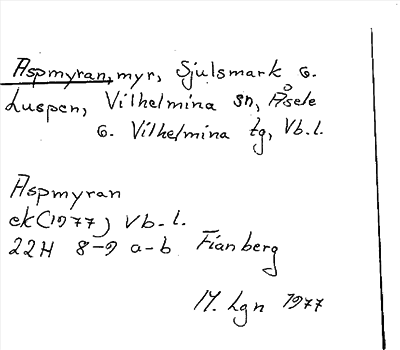 Aspmyran, myr, Sjulsmark o.
Luspen, Vilhelmina sn, Åsele
o. Vilhelmina tg, Vb. l.
Aspmyran
ek (1977) Vb. l.
22H 8-9 a-b Fianberg
M. Lgn 1977